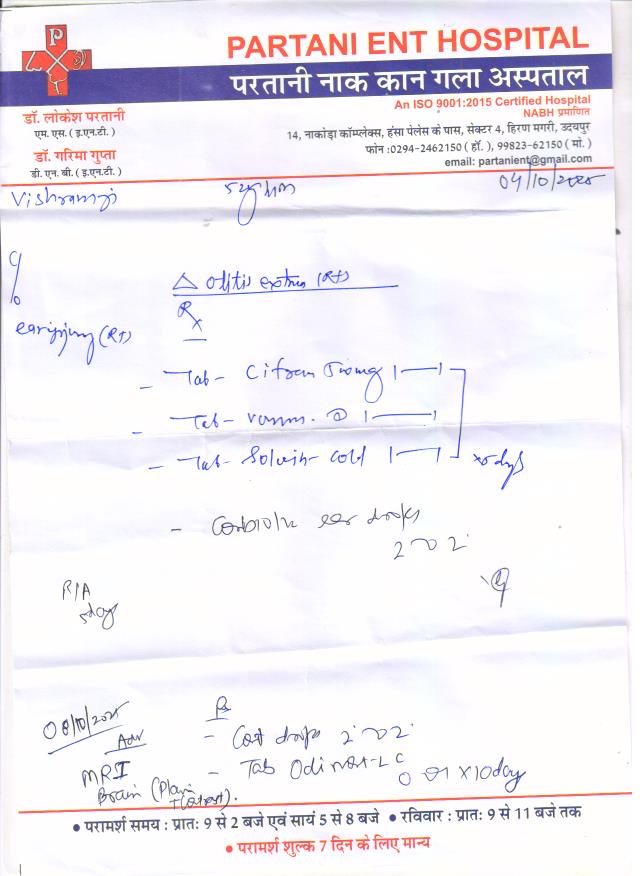 P
PARTANI ENT HOSPITAL
परतानी नाक कान गला अस्पताल
An ISO 9001:2015 Certified Hospital
NABH प्रमाणित
डॉ. लोकेश परतानी
एम. एस. ( इ.एन.टी. )
डॉ. गरिमा गुप्ता
डी. एन. बी. ( इ.एन.टी. )
14, नाकोड़ा कॉम्प्लेक्स, हंसा पेलेस के पास, सेक्टर 4, हिरण मगरी, उदयपुर
फोन :0294-2462150 ( हॉ. ), 99823-62150 ( मो. )
email: partanient@gmail.com
Vishramji
04/10/2025
c/o
Δ Otitis (Rt)
Rx
(Rt)
- Tab- Cifran 1—1
- Tab- 1—
- Tab- Solvin- cold 1—1
- ear drops
2 2
R/A
5day
08/10/2025
Rx
Adv
- drops 2 2
MRI
- Tab LC
Brain (Plain
x10day
+ Contrast).
• परामर्श समय : प्रातः 9 से 2 बजे एवं सायं 5 से 8 बजे • रविवार : प्रातः 9 से 11 बजे तक
• परामर्श शुल्क 7 दिन के लिए मान्य